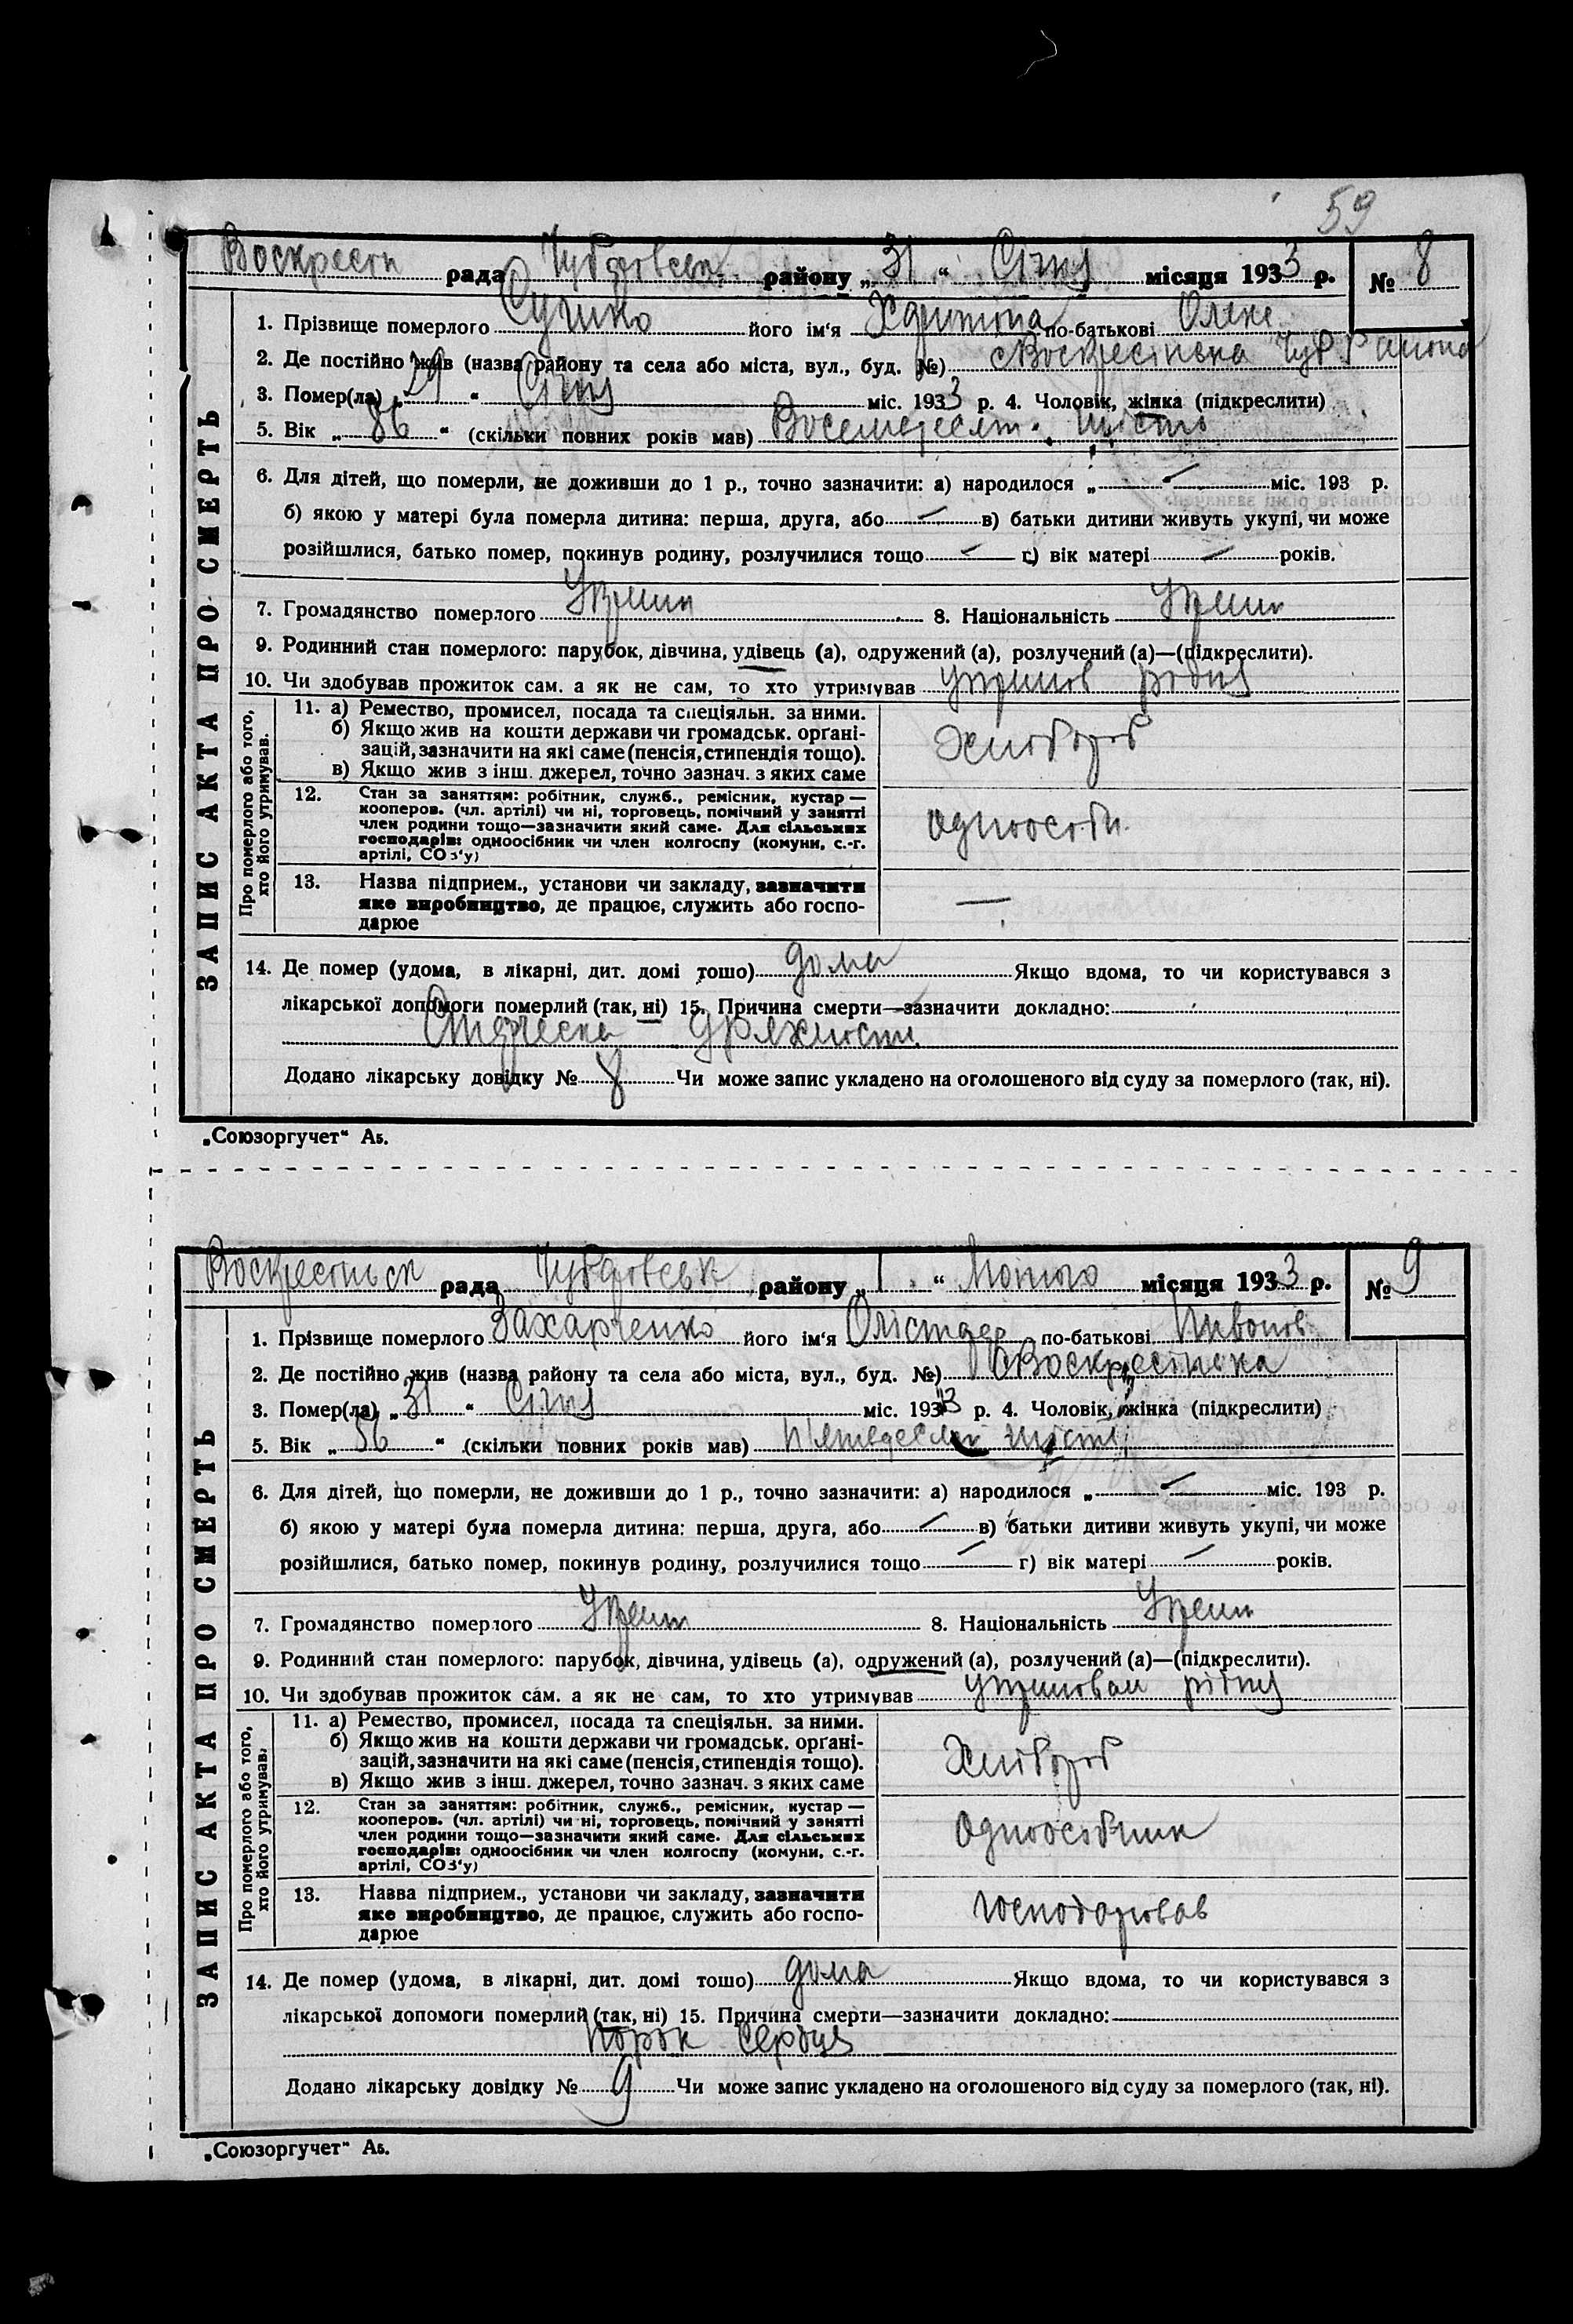 59
Воскресен рада Чубарівськ району „31“ Січня місяця 1933 р. № 8
ЗАПИС АКТА ПРО СМЕРТЬ
1. Прізвище померлого його ім'я по-батькові Олекс
2. Де постійно жив (назва району та села або міста, вул., буд. №) с Воскресінска Чуб Района
3. Помер(ла) „29“ Січня міс. 1933 р. 4. Чоловік, жінка (підкреслити)
5. Вік „86“ (скільки повних років мав) Восемдесят шість
6. Для дітей, що померли, не доживши до 1 р., точно зазначити: а) народилося „ — міс. 193 р.
б) якою у матері була померла дитина: перша, друга, або — в) батьки дитини живуть укупі, чи може
розійшлися, батько помер, покинув родину, розлучилися тощо — г) вік матері — років.
7. Громадянство померлого Украин 8. Національність Украин
9. Родинний стан померлого: парубок, дівчина, удівець (а), одружений (а), розлучений (а)—(підкреслити).
10. Чи здобував прожиток сам. а як не сам, то хто утримував утримов рідня
Про померлого або того, хто його утримував.
11. а) Ремество, промисел, посада та спеціяльн. за ними.
б) Якщо жив на кошти держави чи громадськ. орґані-
зацій, зазначити на які саме (пенсія, стипендія тощо).
в) Якщо жив з інш. джерел, точно зазнач. з яких саме
Хлібороб
12. Стан за заняттям: робітник, служб., ремісник, кустар —
кооперов. (чл. артілі) чи ні, торговець, помічний у занятті
член родини тощо—зазначити який саме. Для сільських
господарів: одноосібник чи член колгоспу (комуни, с.-г.
артілі, СОЗ'у)
одноособн.
13. Назва підприєм., установи чи закладу, зазначити
яке виробництво, де працює, служить або госпо-
дарює
—
14. Де помер (удома, в лікарні, дит. домі тошо) дома Якщо вдома, то чи користувався з
лікарської допомоги померлий (так, ні) 15. Причина смерти—зазначити докладно:
Старческа дряхлость
Додано лікарську довідку № 8 Чи може запис укладено на оголошеного від суду за померлого (так, ні).
„Союзоргучет“ А5.
Воскресеньск рада Чубарівськ району „1“ Лютого місяця 1933 р. № 9
ЗАПИС АКТА ПРО СМЕРТЬ
1. Прізвище померлого Захарченко його ім'я по-батькові
2. Де постійно жив (назва району та села або міста, вул., буд. №) с Воскресінска
3. Помер(ла) „31“ Січня міс. 1933 р. 4. Чоловік, жінка (підкреслити)
5. Вік „56“ (скільки повних років мав) П'ятьдесят шість
6. Для дітей, що померли, не доживши до 1 р., точно зазначити: а) народилося „ — міс. 193 р.
б) якою у матері була померла дитина: перша, друга, або — в) батьки дитини живуть укупі, чи може
розійшлися, батько помер, покинув родину, розлучилися тощо — г) вік матері — років.
7. Громадянство померлого Украин 8. Національність Украин
9. Родинний стан померлого: парубок, дівчина, удівець (а), одружений (а), розлучений (а)—(підкреслити).
10. Чи здобував прожиток сам. а як не сам, то хто утримував утримовал рідня
Про померлого або того, хто його утримував.
11. а) Ремество, промисел, посада та спеціяльн. за ними.
б) Якщо жив на кошти держави чи громадськ. орґані-
зацій, зазначити на які саме (пенсія, стипендія тощо).
в) Якщо жив з інш. джерел, точно зазнач. з яких саме
Хлібороб
12. Стан за заняттям: робітник, служб., ремісник, кустар —
кооперов. (чл. артілі) чи ні, торговець, помічний у занятті
член родини тощо—зазначити який саме. Для сільських
господарів: одноосібник чи член колгоспу (комуни, с.-г.
артілі, СОЗ'у)
Одноособник
13. Назва підприєм., установи чи закладу, зазначити
яке виробництво, де працює, служить або госпо-
дарює
господарював
14. Де помер (удома, в лікарні, дит. домі тошо) дома Якщо вдома, то чи користувався з
лікарської допомоги померлий (так, ні) 15. Причина смерти—зазначити докладно:
Порок сердця
Додано лікарську довідку № 9 Чи може запис укладено на оголошеного від суду за померлого (так, ні).
„Союзоргучет“ А5.